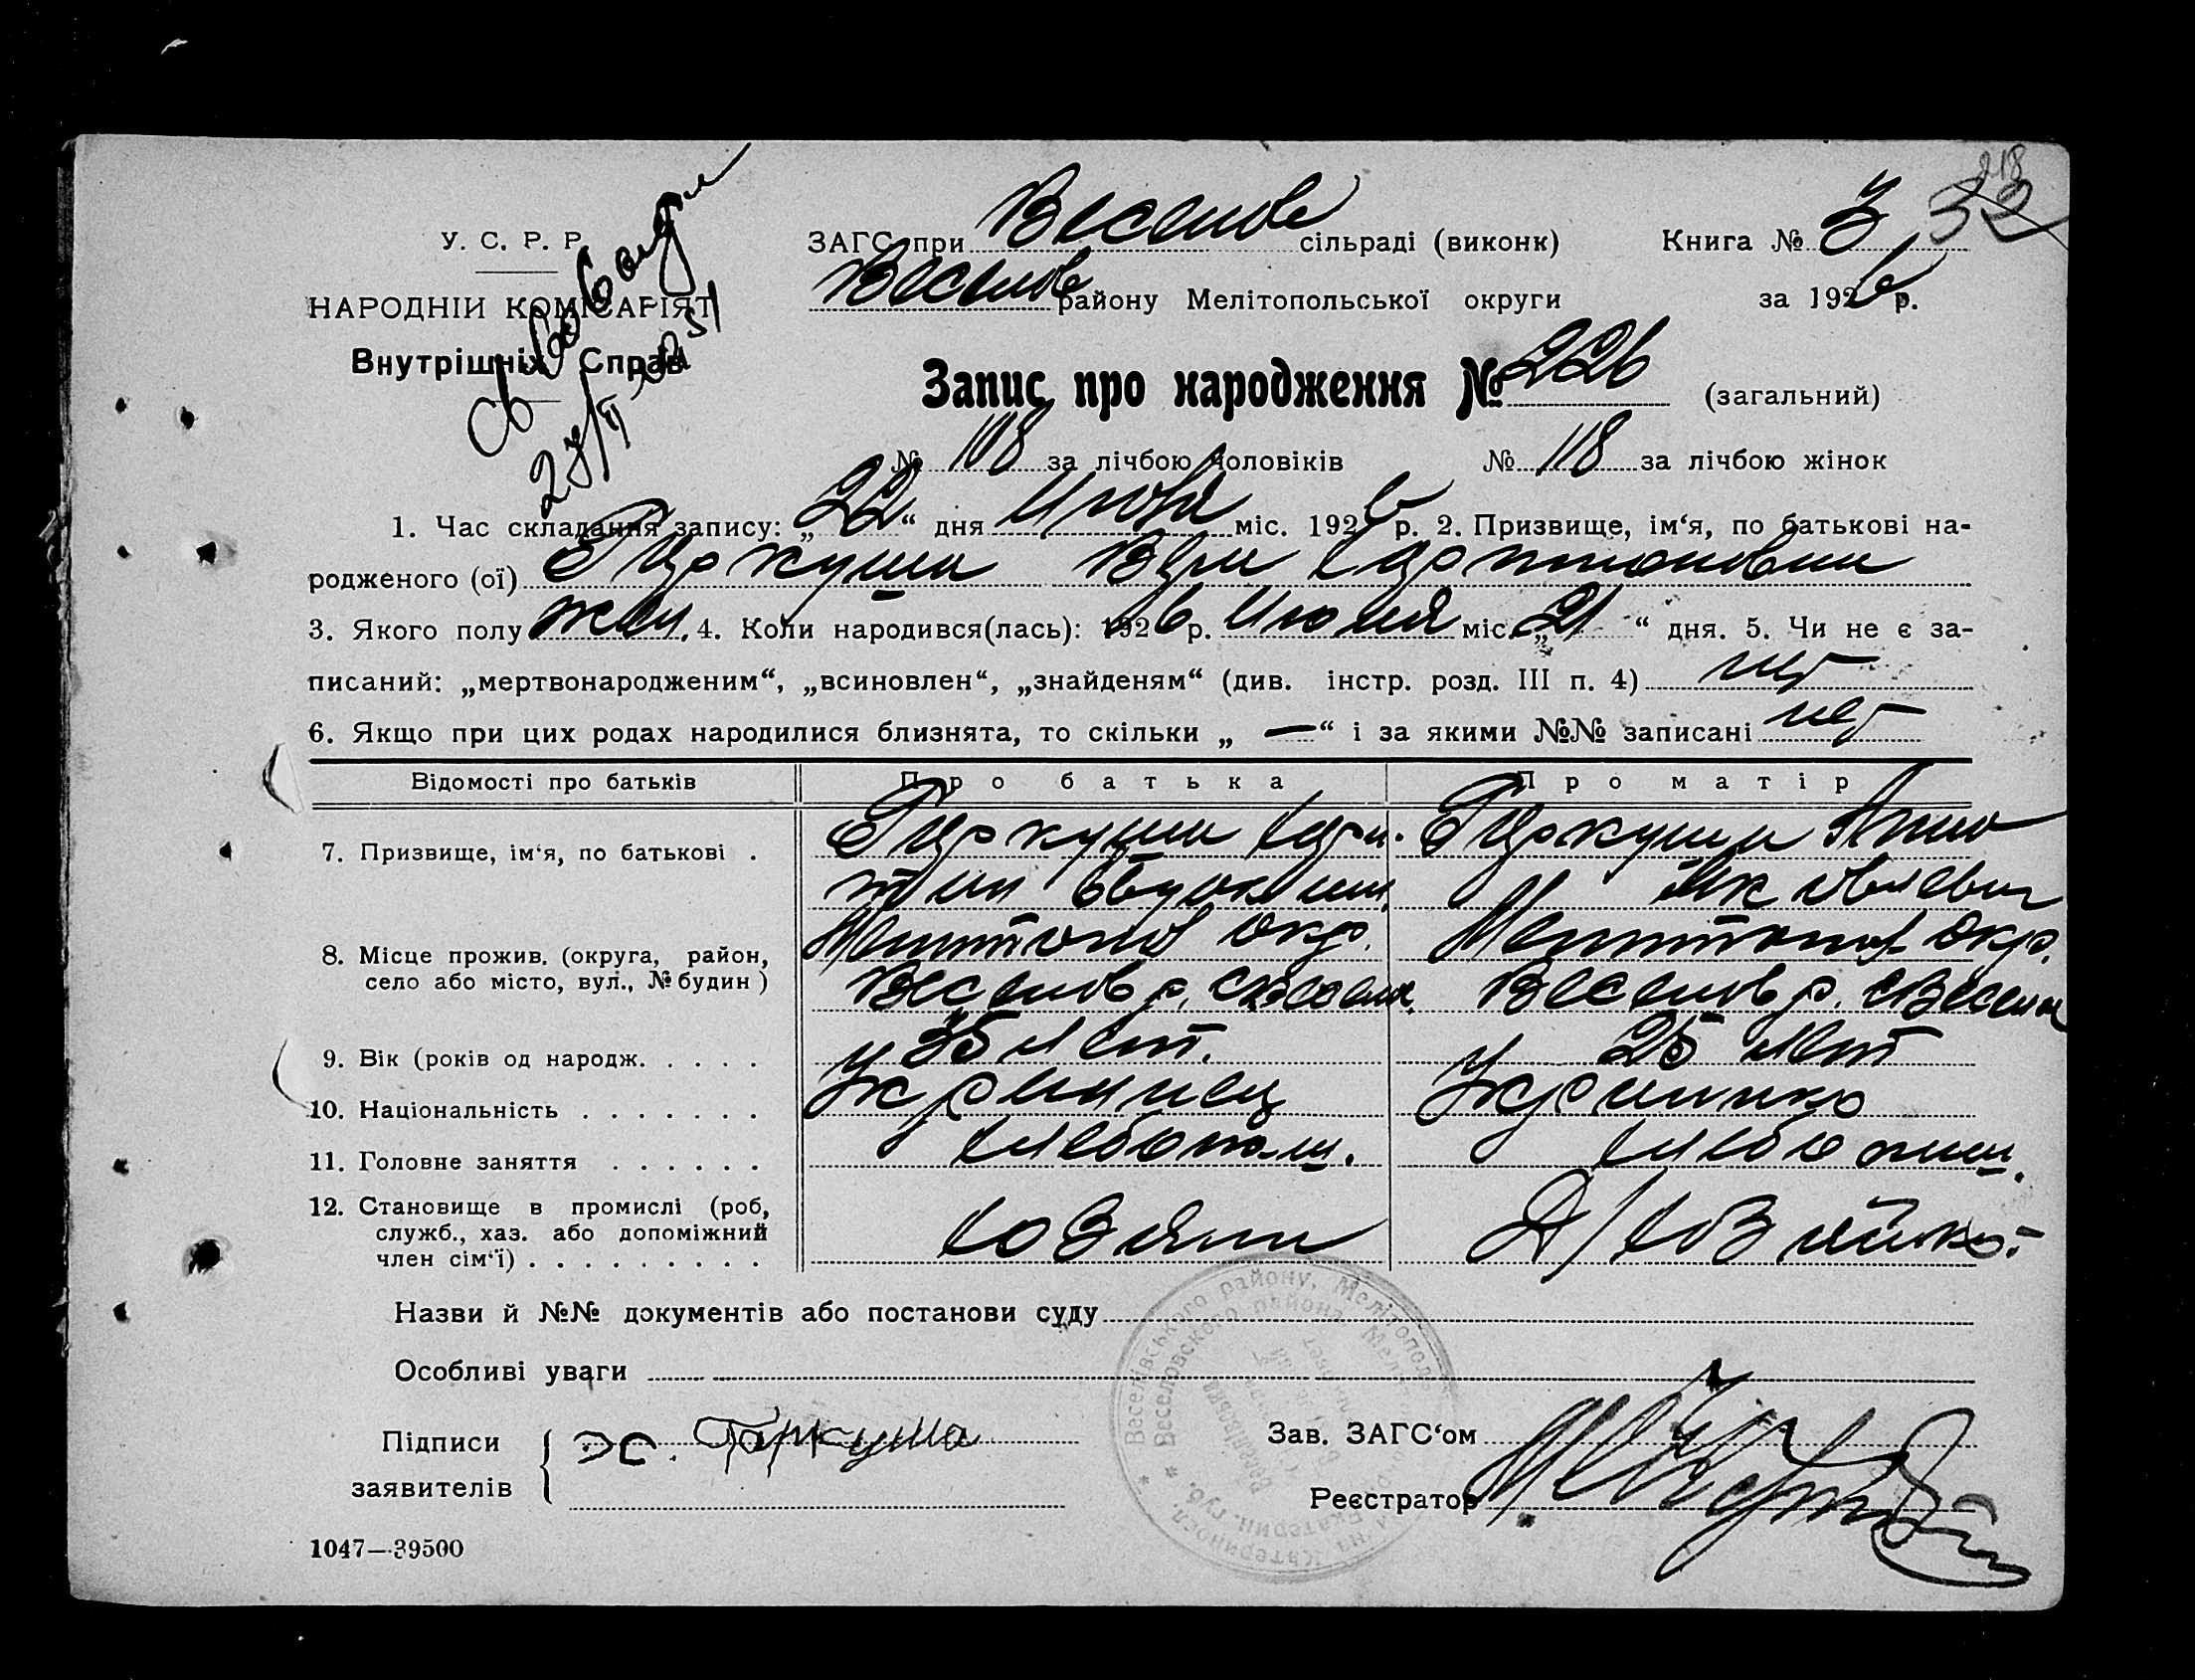 218
32
У. С. Р. Р.
ЗАГС при Веселов сільраді (виконк)
Книга № 3
НАРОДНІЙ КОМІСАРІЯТ
Веселов району Мелітопольської округи
за 1926 р.
Внутрішніх Справ
Запис про народження № 226 (загальний)
№ 108 за лічбою чоловіків
№ 118 за лічбою жінок
1. Час складання запису: „22“ дня Июля міс. 1926 р. 2. Призвище, ім‘я, по батькові на-
родженого (ої) Гаркуша Вера Харитоновна
3. Якого полу жен. 4. Коли народився(лась): 1926 р. Июля міс. „21“ дня. 5. Чи не є за-
писаний: „мертвонародженим“, „всиновлен“, „знайденям“ (див. інстр. розд. III п. 4) нет
6. Якщо при цих родах народилися близнята, то скільки „ — “ і за якими №№ записані нет
Відомості про батьків
Про батька
Про матір
7. Призвище, ім‘я, по батькові .
Гаркуша Хари-
тон Евдоким.
Гаркуша Анна
Яковлевн
8. Місце прожив. (округа, район,
село або місто, вул., № будин)
Мелитопол окр.
Веселов р. с Веселое
Мелитопол окр.
Веселов р. с Веселое
9. Вік (років од народж. . . . .
35 лет.
25 лет
10. Національність . . . . . . .
Украинец
Украинка
11. Головне заняття . . . . . .
хлебопаш.
хлебопаш.
12. Становище в промислі (роб,
служб., хаз. або допоміжний
член сім‘ї) . . . . . . . . .
хозяин
Д/хозяйка
Назви й №№ документів або постанови суду
Особливі уваги
Підписи
заявителів
Х. Гаркуша
Зав. ЗАГС‘ом
Реєстратор
1047—39500